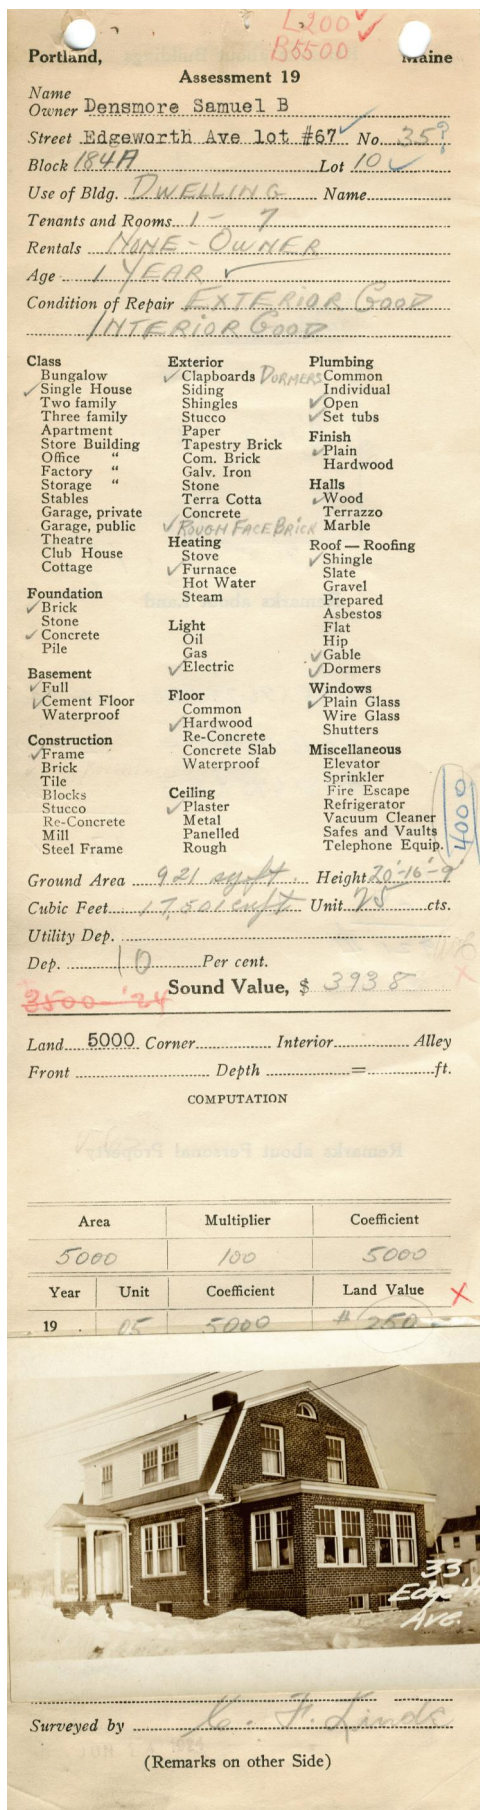 L200 ✓
B5500 ✓
Portland, Maine
Assessment 19
Name
Owner Densmore Samuel B
Street Edgeworth Ave lot #67 ✓ No. 35?
Block 184A Lot 10 ✓
Use of Bldg. DWELLING Name
Tenants and Rooms 1 - 7
Rentals NONE - OWNER
Age 1 YEAR ✓
Condition of Repair EXTERIOR GOOD
INTERIOR GOOD
Class
Bungalow
✓ Single House
Two family
Three family
Apartment
Store Building
Office "
Factory "
Storage "
Stables
Garage, private
Garage, public
Theatre
Club House
Cottage
Foundation
✓ Brick
Stone
✓ Concrete
Pile
Basement
✓ Full
✓ Cement Floor
Waterproof
Construction
✓ Frame
Brick
Tile
Blocks
Stucco
Re-Concrete
Mill
Steel Frame
Exterior
✓ Clapboards DORMERS
Siding
Shingles
Stucco
Paper
Tapestry Brick
Com. Brick
Galv. Iron
Stone
Terra Cotta
Concrete
✓ ROUGH FACE BRICK
Heating
Stove
✓ Furnace
Hot Water
Steam
Light
Oil
Gas
✓ Electric
Floor
Common
✓ Hardwood
Re-Concrete
Concrete Slab
Waterproof
Ceiling
✓ Plaster
Metal
Panelled
Rough
Plumbing
Common
Individual
✓ Open
✓ Set tubs
Finish
✓ Plain
Hardwood
Halls
✓ Wood
Terrazzo
Marble
Roof — Roofing
✓ Shingle
Slate
Gravel
Prepared
Asbestos
Flat
Hip
✓ Gable
✓ Dormers
Windows
✓ Plain Glass
Wire Glass
Shutters
Miscellaneous
Elevator
Sprinkler
Fire Escape
Refrigerator
Vacuum Cleaner
Safes and Vaults
Telephone Equip.
4000
Ground Area 921 sq ft. Height 20'-16'-9
Cubic Feet 17,501 cu ft. Unit 25 cts.
Utility Dep.
Dep. 10 Per cent.
3500-'24
Sound Value, $ 3938
Land 5000 Corner Interior Alley
Front Depth = ft.
COMPUTATION
Area Multiplier Coefficient
5000 100 5000
Year Unit Coefficient Land Value
19 05 5000 # 250 -
33
Ave.
Surveyed by
(Remarks on other Side)